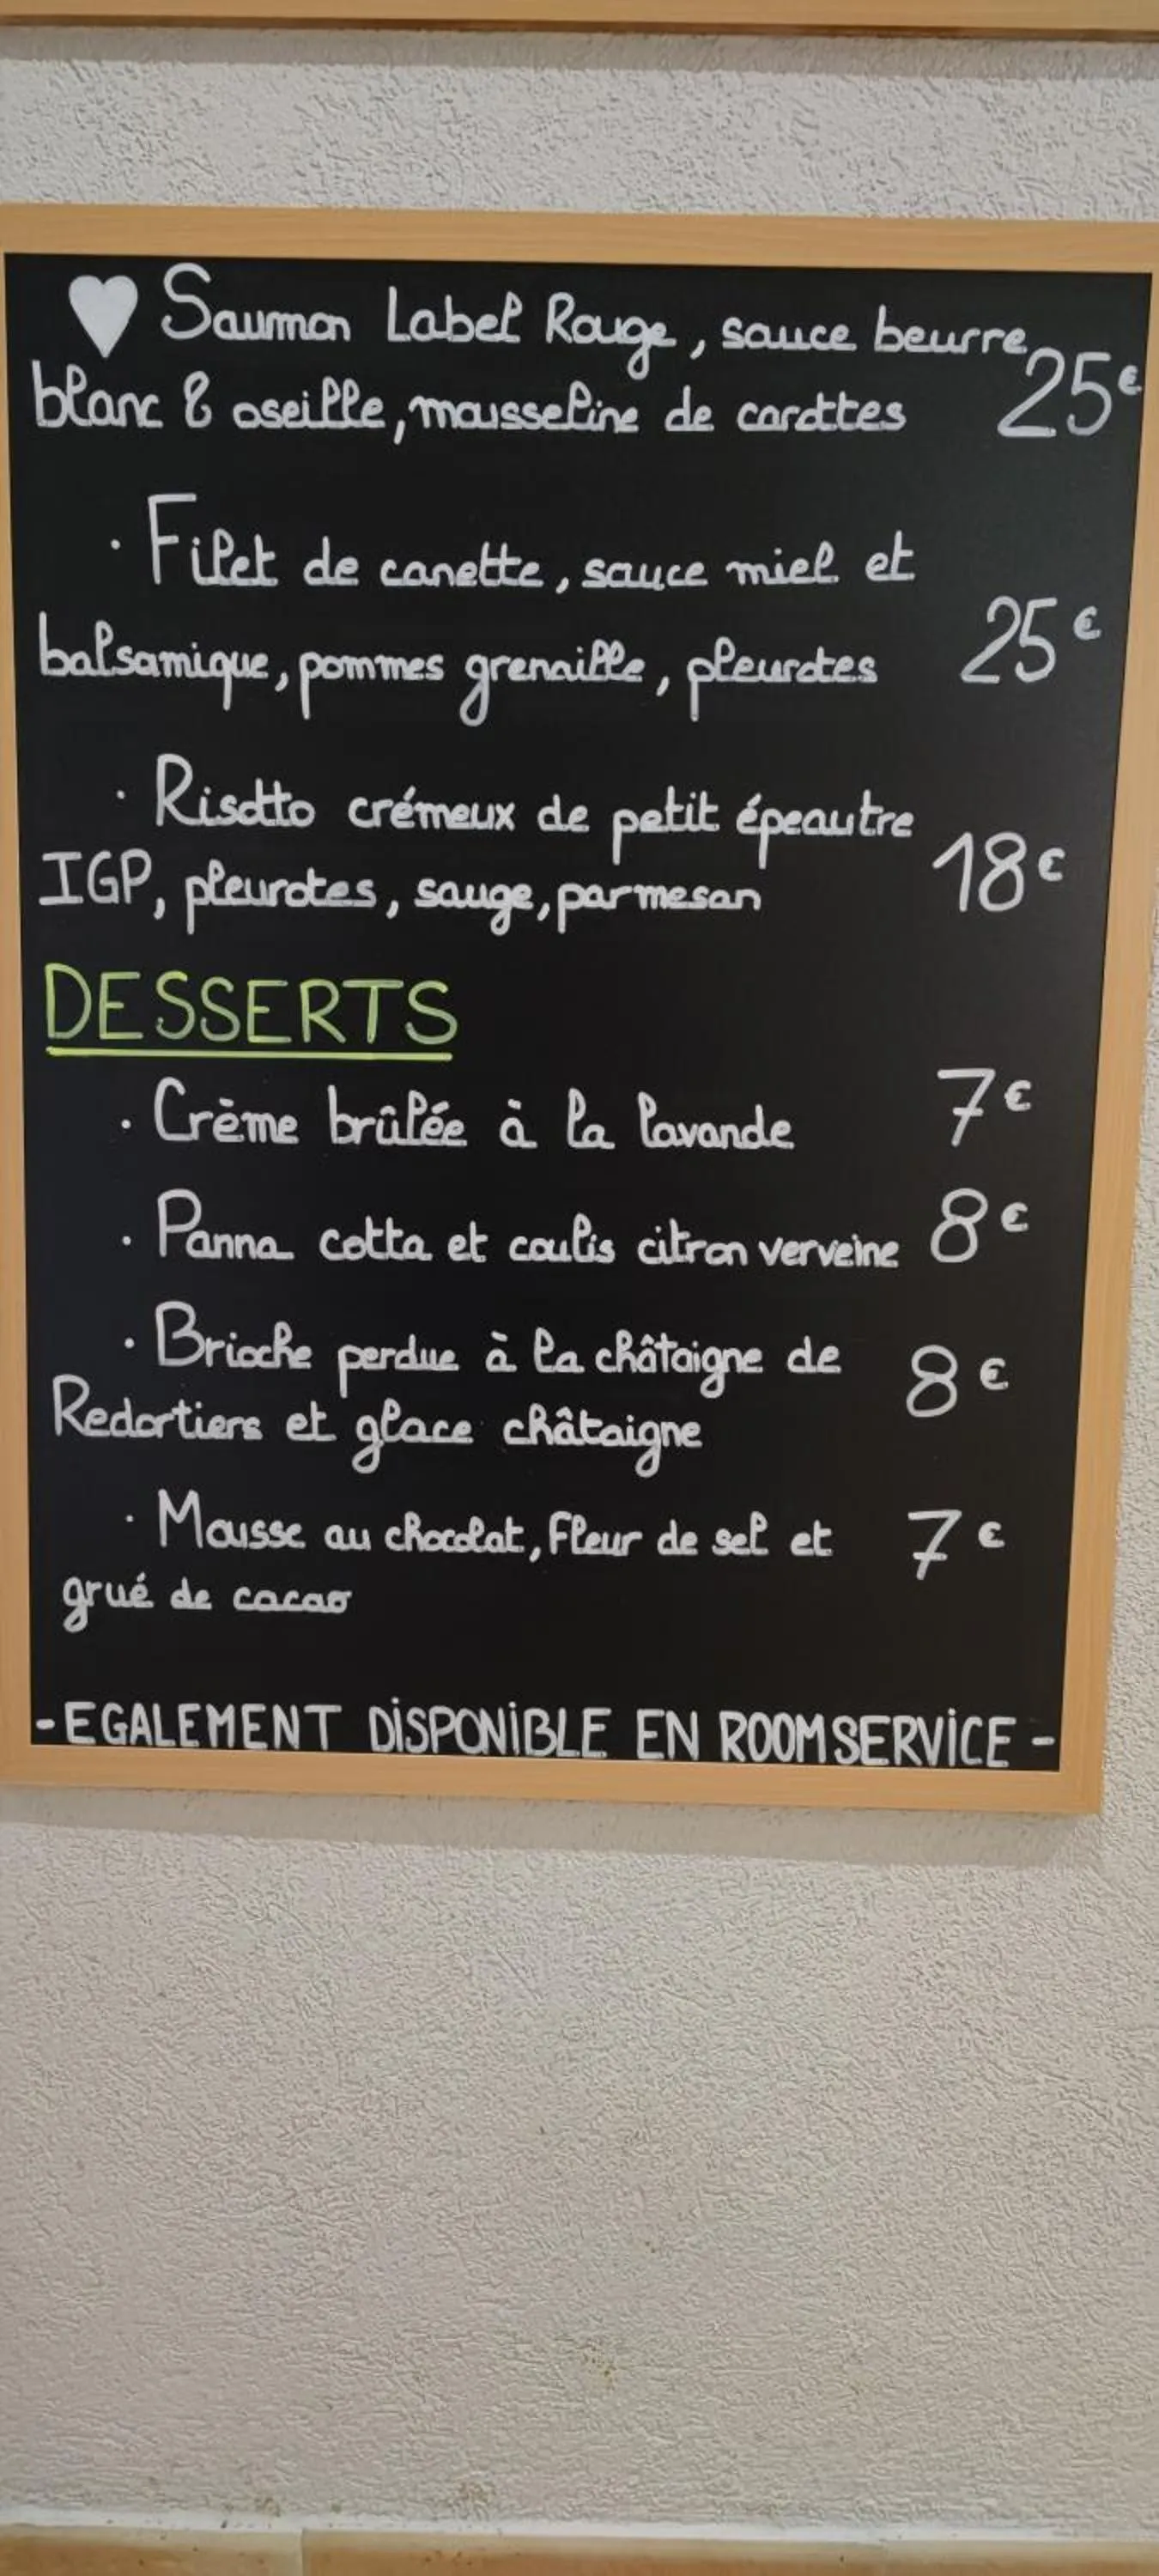 ♥ Saumon Label Rouge, sauce beurre
blanc & oseille, mousseline de carottes 25€
· Filet de canette, sauce miel et
balsamique, pommes grenaille, pleurotes 25€
· Risotto crémeux de petit épeautre
IGP, pleurotes, sauge, parmesan 18€
DESSERTS
· Crème brûlée à la lavande 7€
· Panna cotta et coulis citron verveine 8€
· Brioche perdue à la châtaigne de 8€
Redortiers et glace châtaigne
· Mousse au chocolat, fleur de sel et 7€
grué de cacao
- EGALEMENT DISPONIBLE EN ROOMSERVICE -